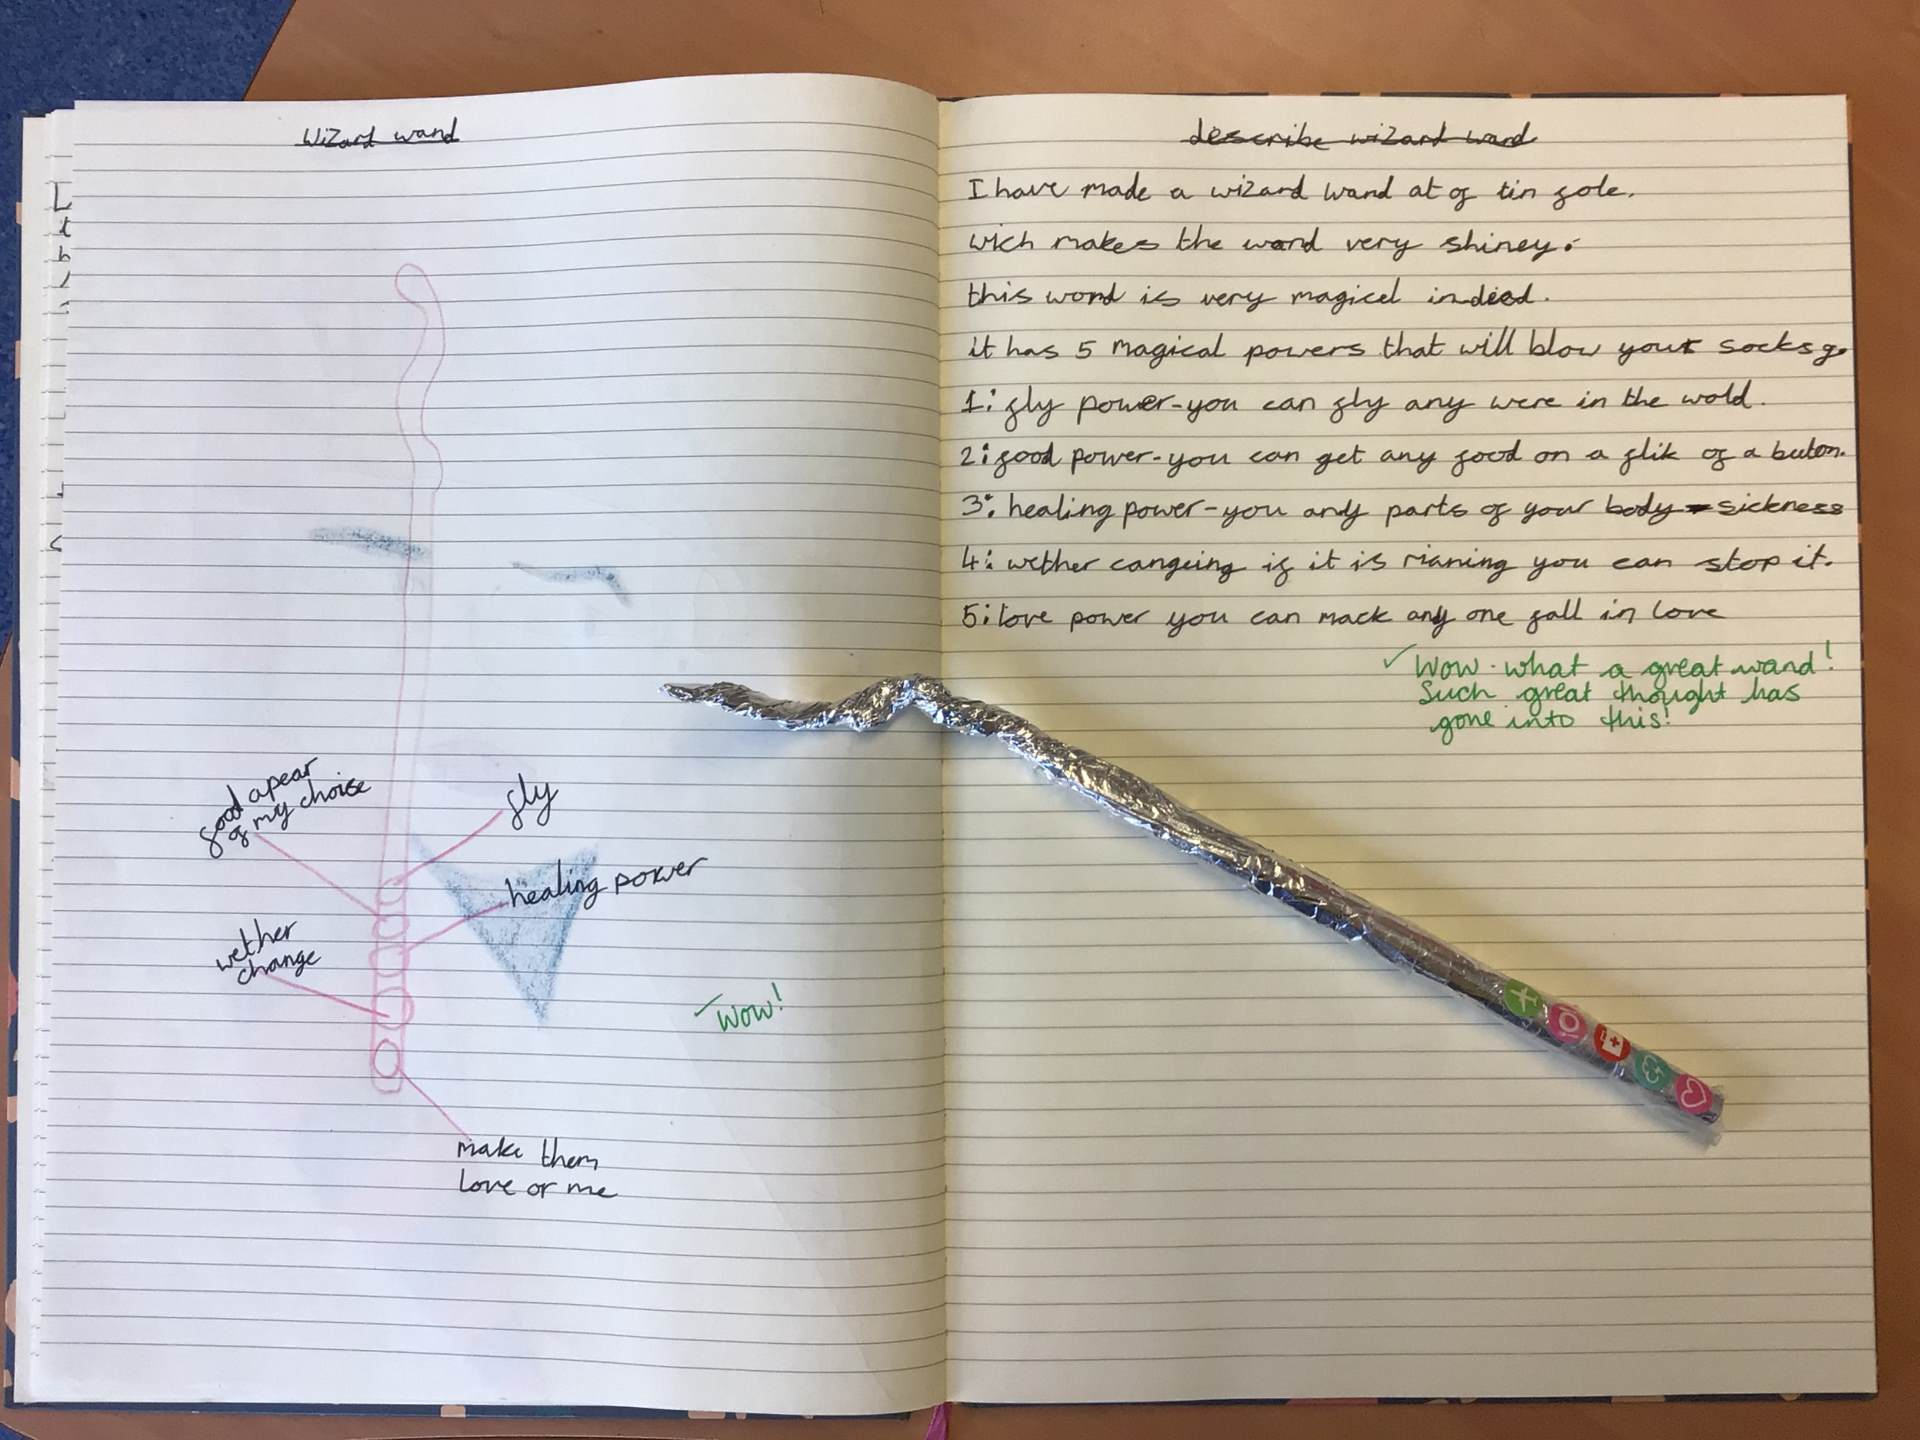 Wizard wand
food apear
of my choise
fly
healing power
wether
change
make them
love or me
Wow!
describe wizard wand
I have made a wizard wand at of tin fole.
wich makes the wand very shiney.
this wand is very magicel indeed.
it has 5 magical powers that will blow your socks of.
1: fly power-you can fly any were in the wold.
2: food power-you can get any food on a flik of a buton.
3: healing power-you any parts of your body - sickness
4: wether cangeing if it is rianing you can stop it.
5: love power you can mack any one fall in love
Wow what a great wand!
Such great thought has
gone into this!